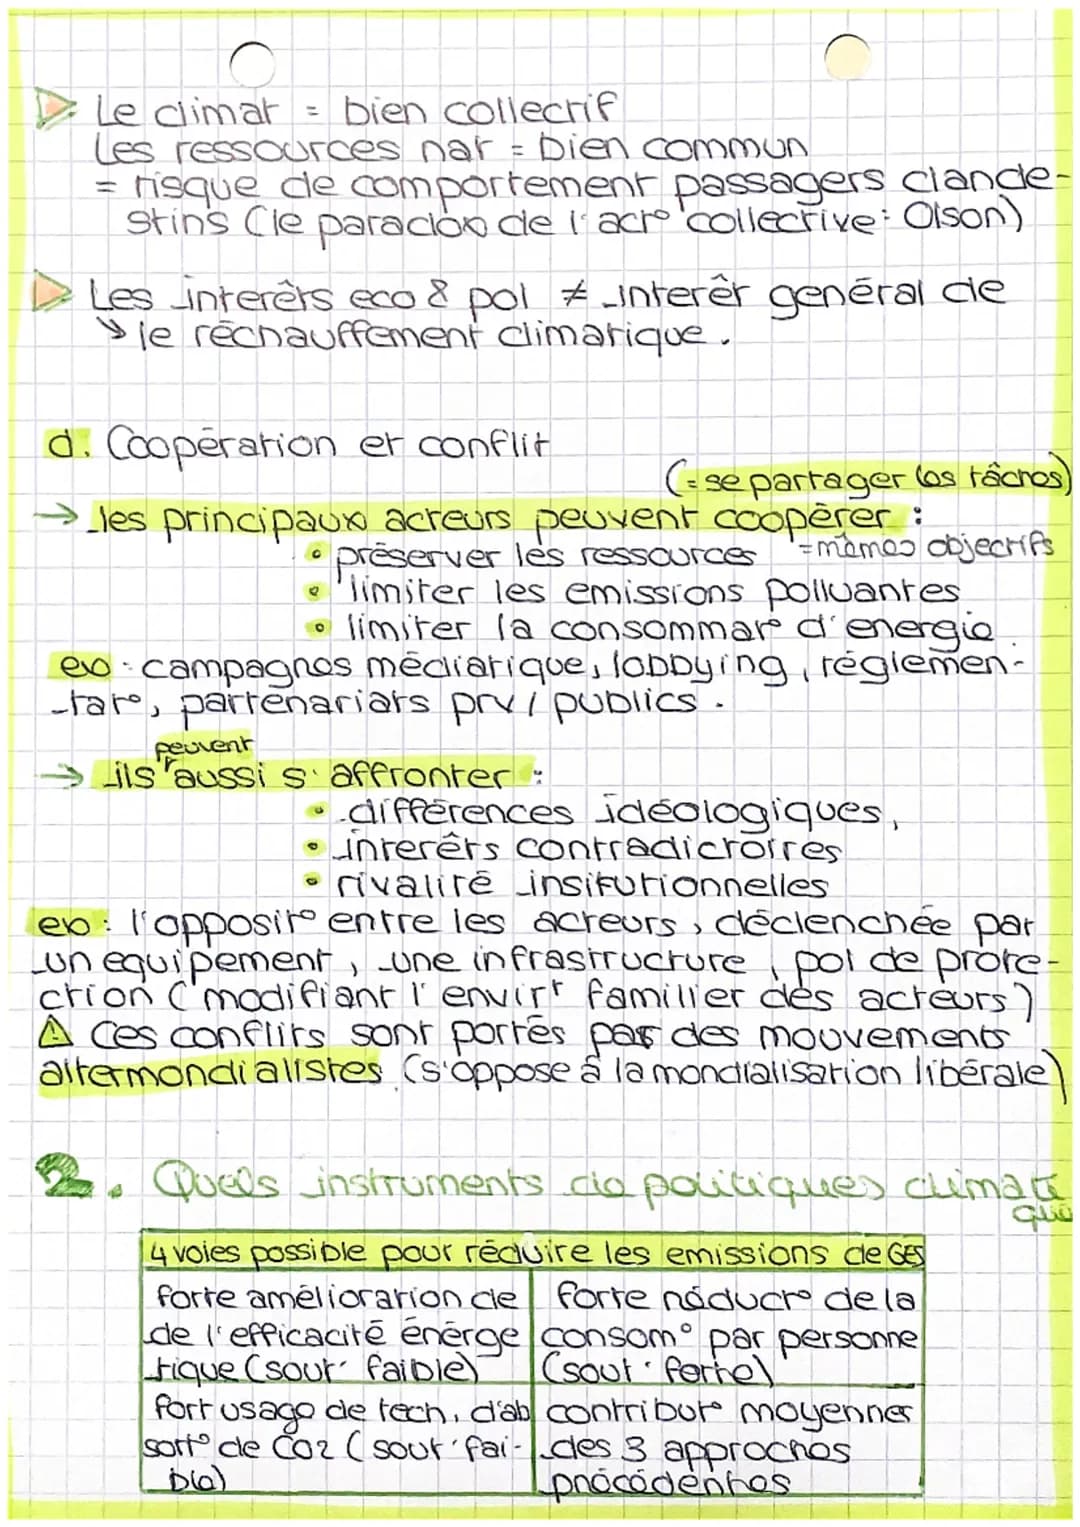 Le climat = bien collectif
Les ressources nat = bien commun
= risque de comportement passagers clande-
stins (le paradox de l'act° collective: Olson)
Les interêts eco & pol ≠ interêt général de
↘ le réchauffement climatique.
d. Coopération et conflit
(= se partager les tâches)
→ les principaux acteurs peuvent coopérer :
• préserver les ressources = mêmes objectifs
• limiter les emissions polluantes
• limiter la consommat° d'energie.
ex : campagnes médiatique, lobbying, réglemen-
-tat°, partenariats prv / publics.
peuvent
→ ils aussi s'affronter :
• différences idéologiques,
• interêts contradictoires
• rivalité insitutionnelles
ex : l'opposit° entre les acteurs, déclenchée par
un equipement, une infrastructure, pol de prote-
ction (modifiant l'envirt familier des acteurs)
⚠ Ces conflits sont portés par des mouvements
altermondialistes (s'oppose à la mondialisation libérale)
2. Quels instruments de politiques climati
que
4 voies possible pour réduire les emissions de GES
forte amélioration de
de l'efficacité énérge
tique (sout. faible)
forte réduct° de la
consom° par personne
(sout. forte)
fort usage de tech. d'ab
sort° de CO2 (sout. fai-
ble)
contribut° moyennes
des 3 approches
précédentes